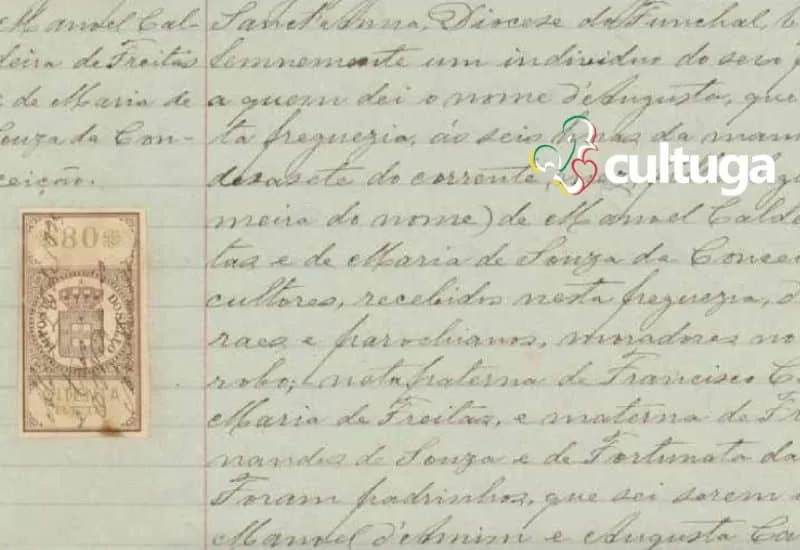 Manoel Cal-
deira de Freitas
e de Maria de
Souza da Con-
ceição.
80
IMPOSTO DO SELLO
Sanct'Anna, Diocese do Funchal, b
lemnemente um individuo do sexo f
a quem dei o nome d'Augusta, que
ta freguezia, ás seis horas da man
desasete do corrente
cultuga
meira do nome) de Manoel Calde
tas e de Maria de Souza da Concei
cultores, recebidos nesta freguezia, d
raes e parochianos, moradores no
robo; neta paterna de Francisco C
Maria de Freitas, e materna de Fr
nandes de Souza e de Fortunata da
Foram padrinhos, que sei serem
Manoel d'Amim e Augusta Ca